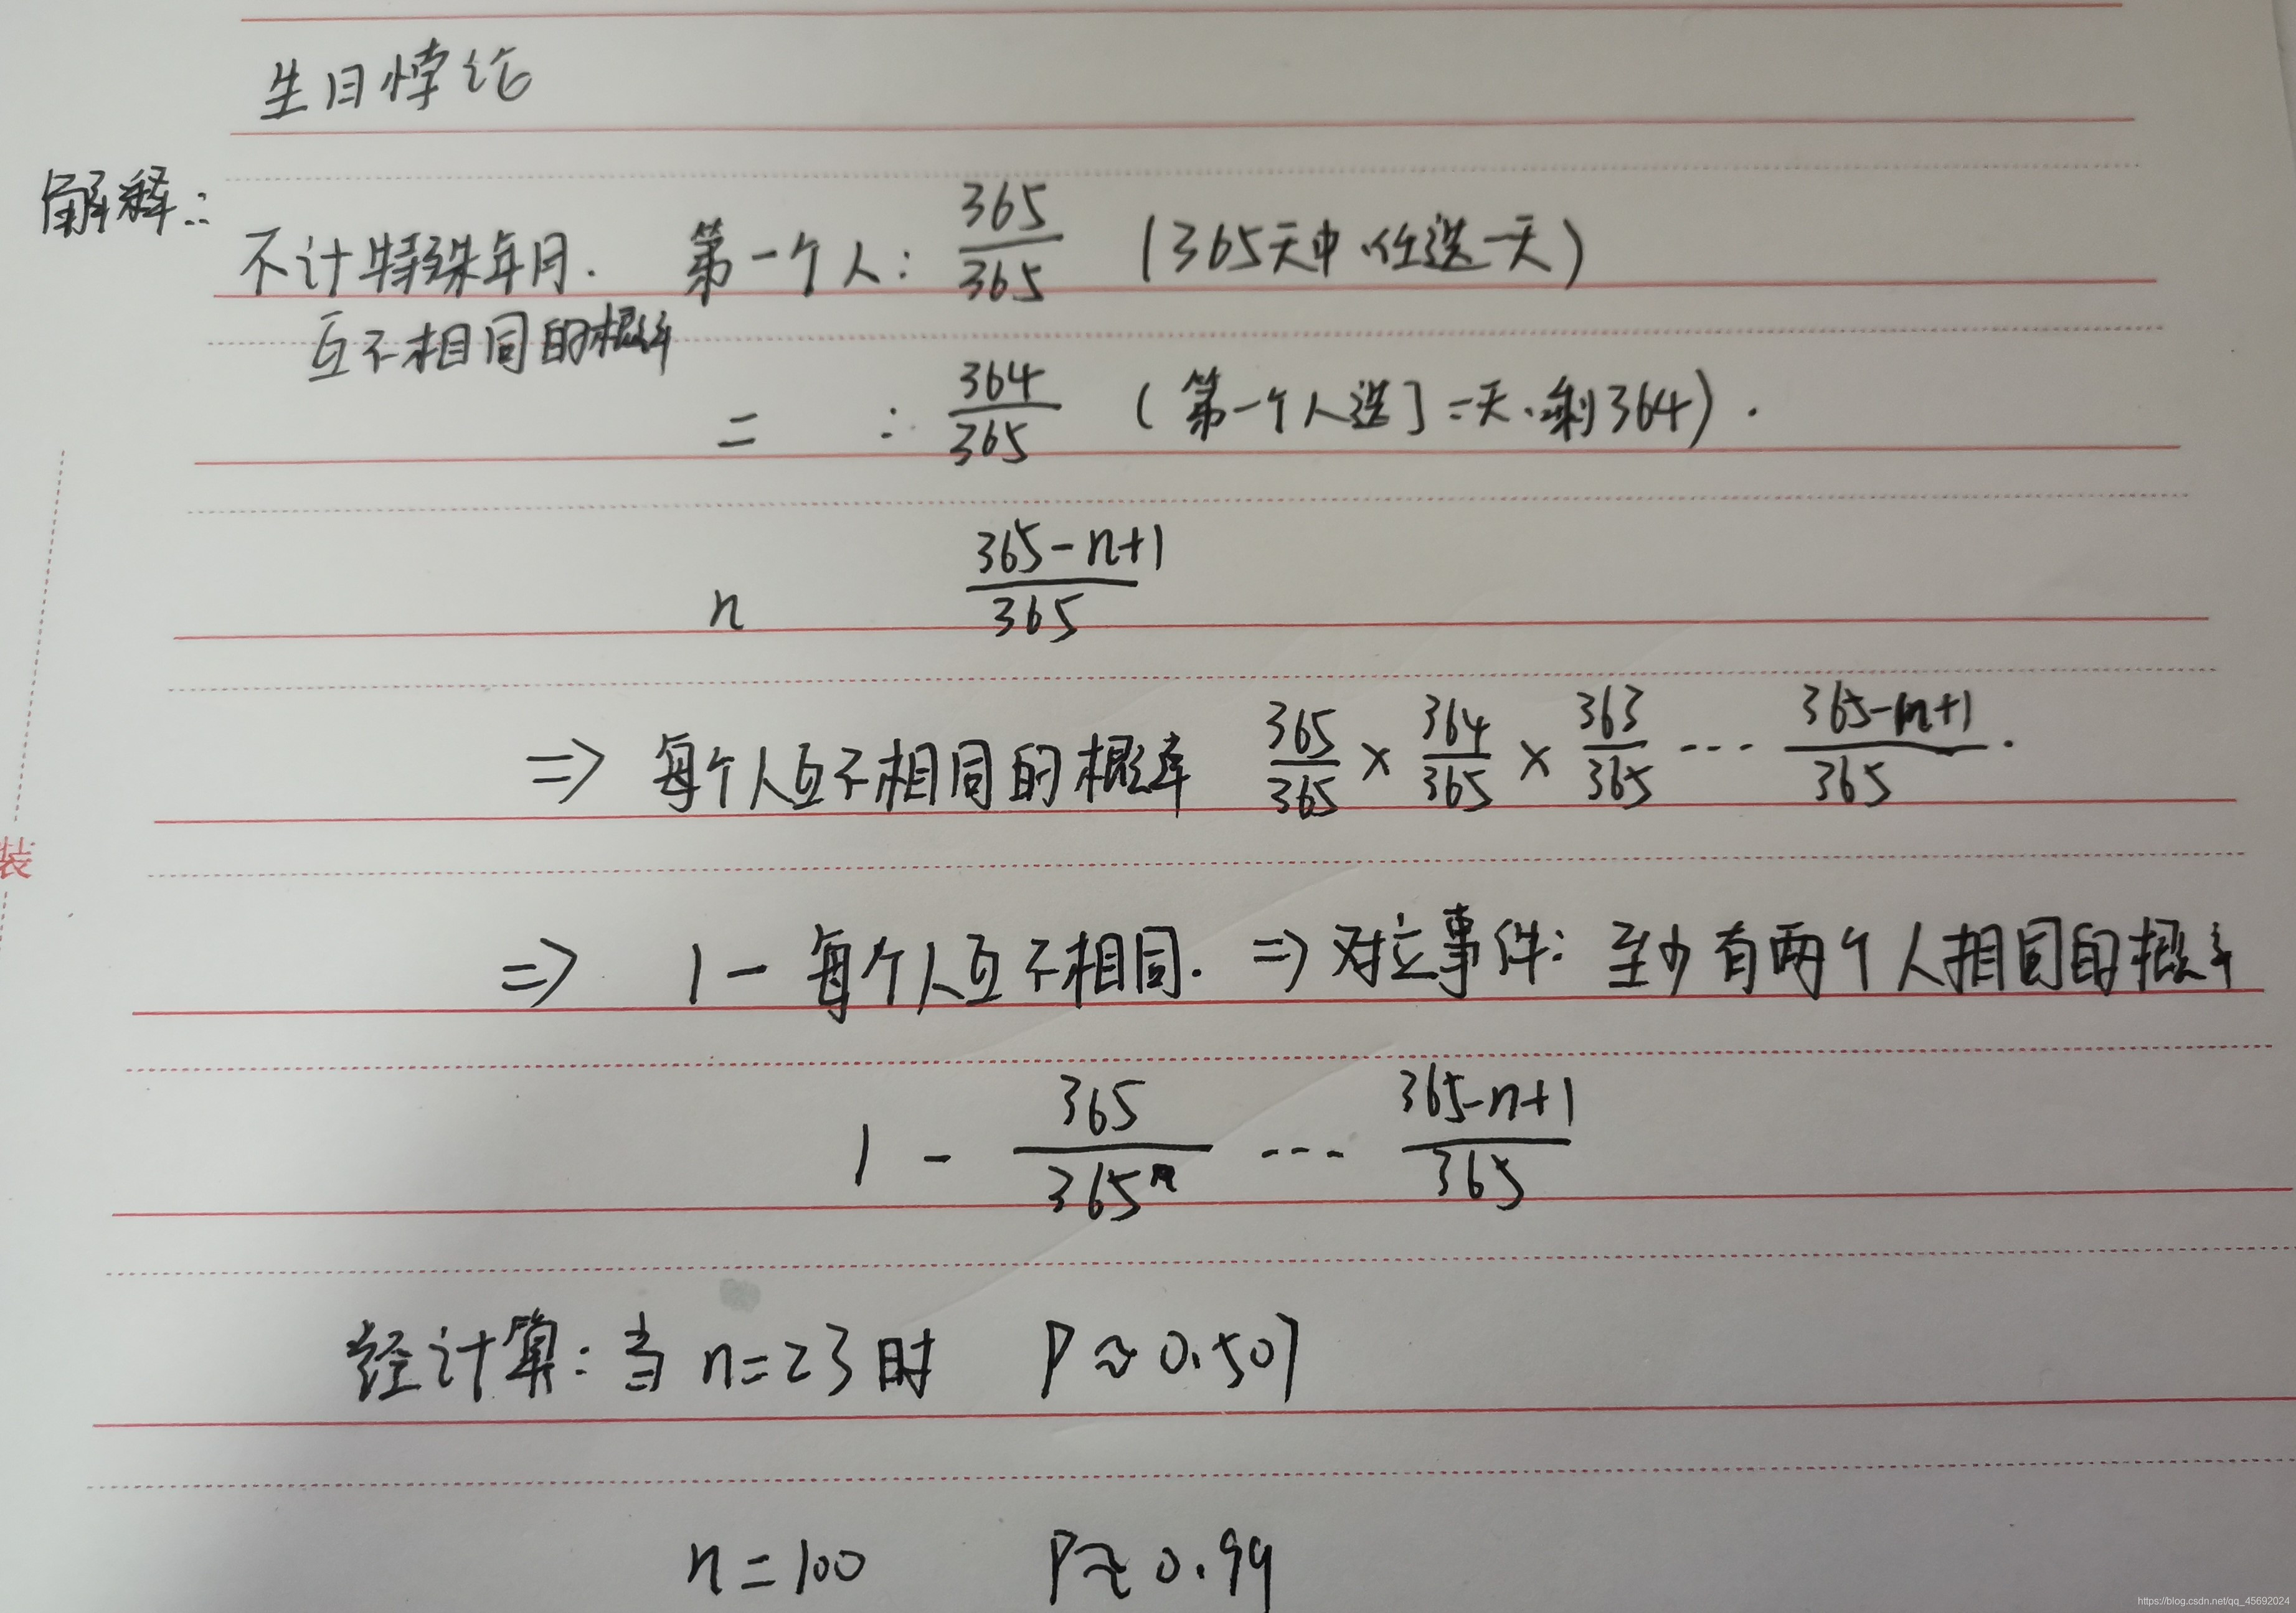 生日悖论
解释:
不计特殊年月. 第一个人: 365/365 (365天中任选一天)
互不相同的概率
二 : 364/365 (第一个人选了一天.剩364).
n (365-n+1)/365
=> 每个人互不相同的概率 365/365 × 364/365 × 363/365 --- (365-n+1)/365.
装
=> 1 - 每个人互不相同. => 对立事件: 至少有两个人相同的概率
1 - 365/365ⁿ --- (365-n+1)/365
经计算: 当 n=23 时 P≈0.507
n=100 P≈0.99
https://blog.csdn.net/qq_45692024